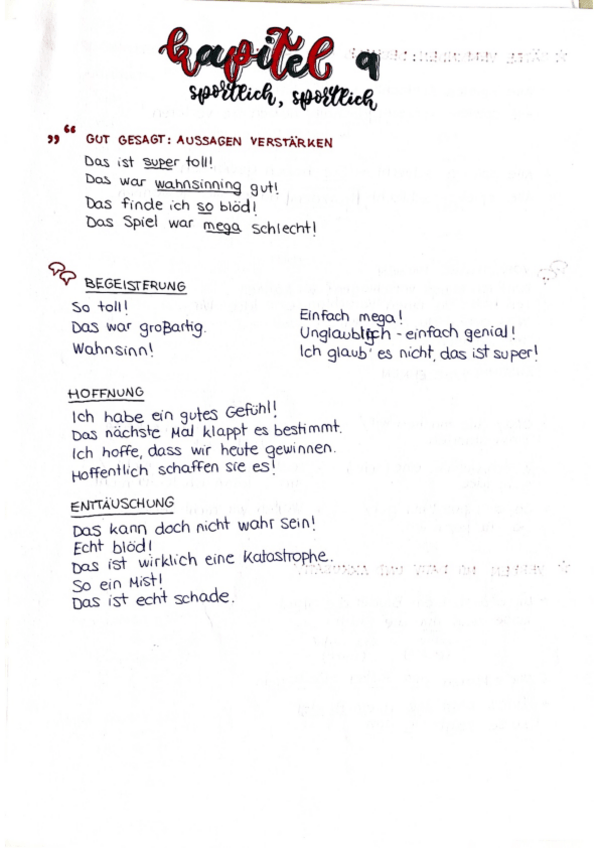 Kapitel 9
sportlich, sportlich
GUT GESAGT: AUSSAGEN VERSTÄRKEN
Das ist super toll!
Das war wahnsinning gut!
Das finde ich so blöd!
Das Spiel war mega schlecht!
BEGEISTERUNG
So toll!
Das war großartig.
Wahnsinn!
Einfach mega!
Unglaublich - einfach genial!
Ich glaub' es nicht, das ist super!
HOFFNUNG
Ich habe ein gutes Gefühl!
Das nächste Mal klappt es bestimmt.
Ich hoffe, dass wir heute gewinnen.
Hoffentlich schaffen sie es!
ENTTÄUSCHUNG
Das kann doch nicht wahr sein!
Echt blöd!
Das ist wirklich eine Katastrophe.
So ein Mist!
Das ist echt schade.